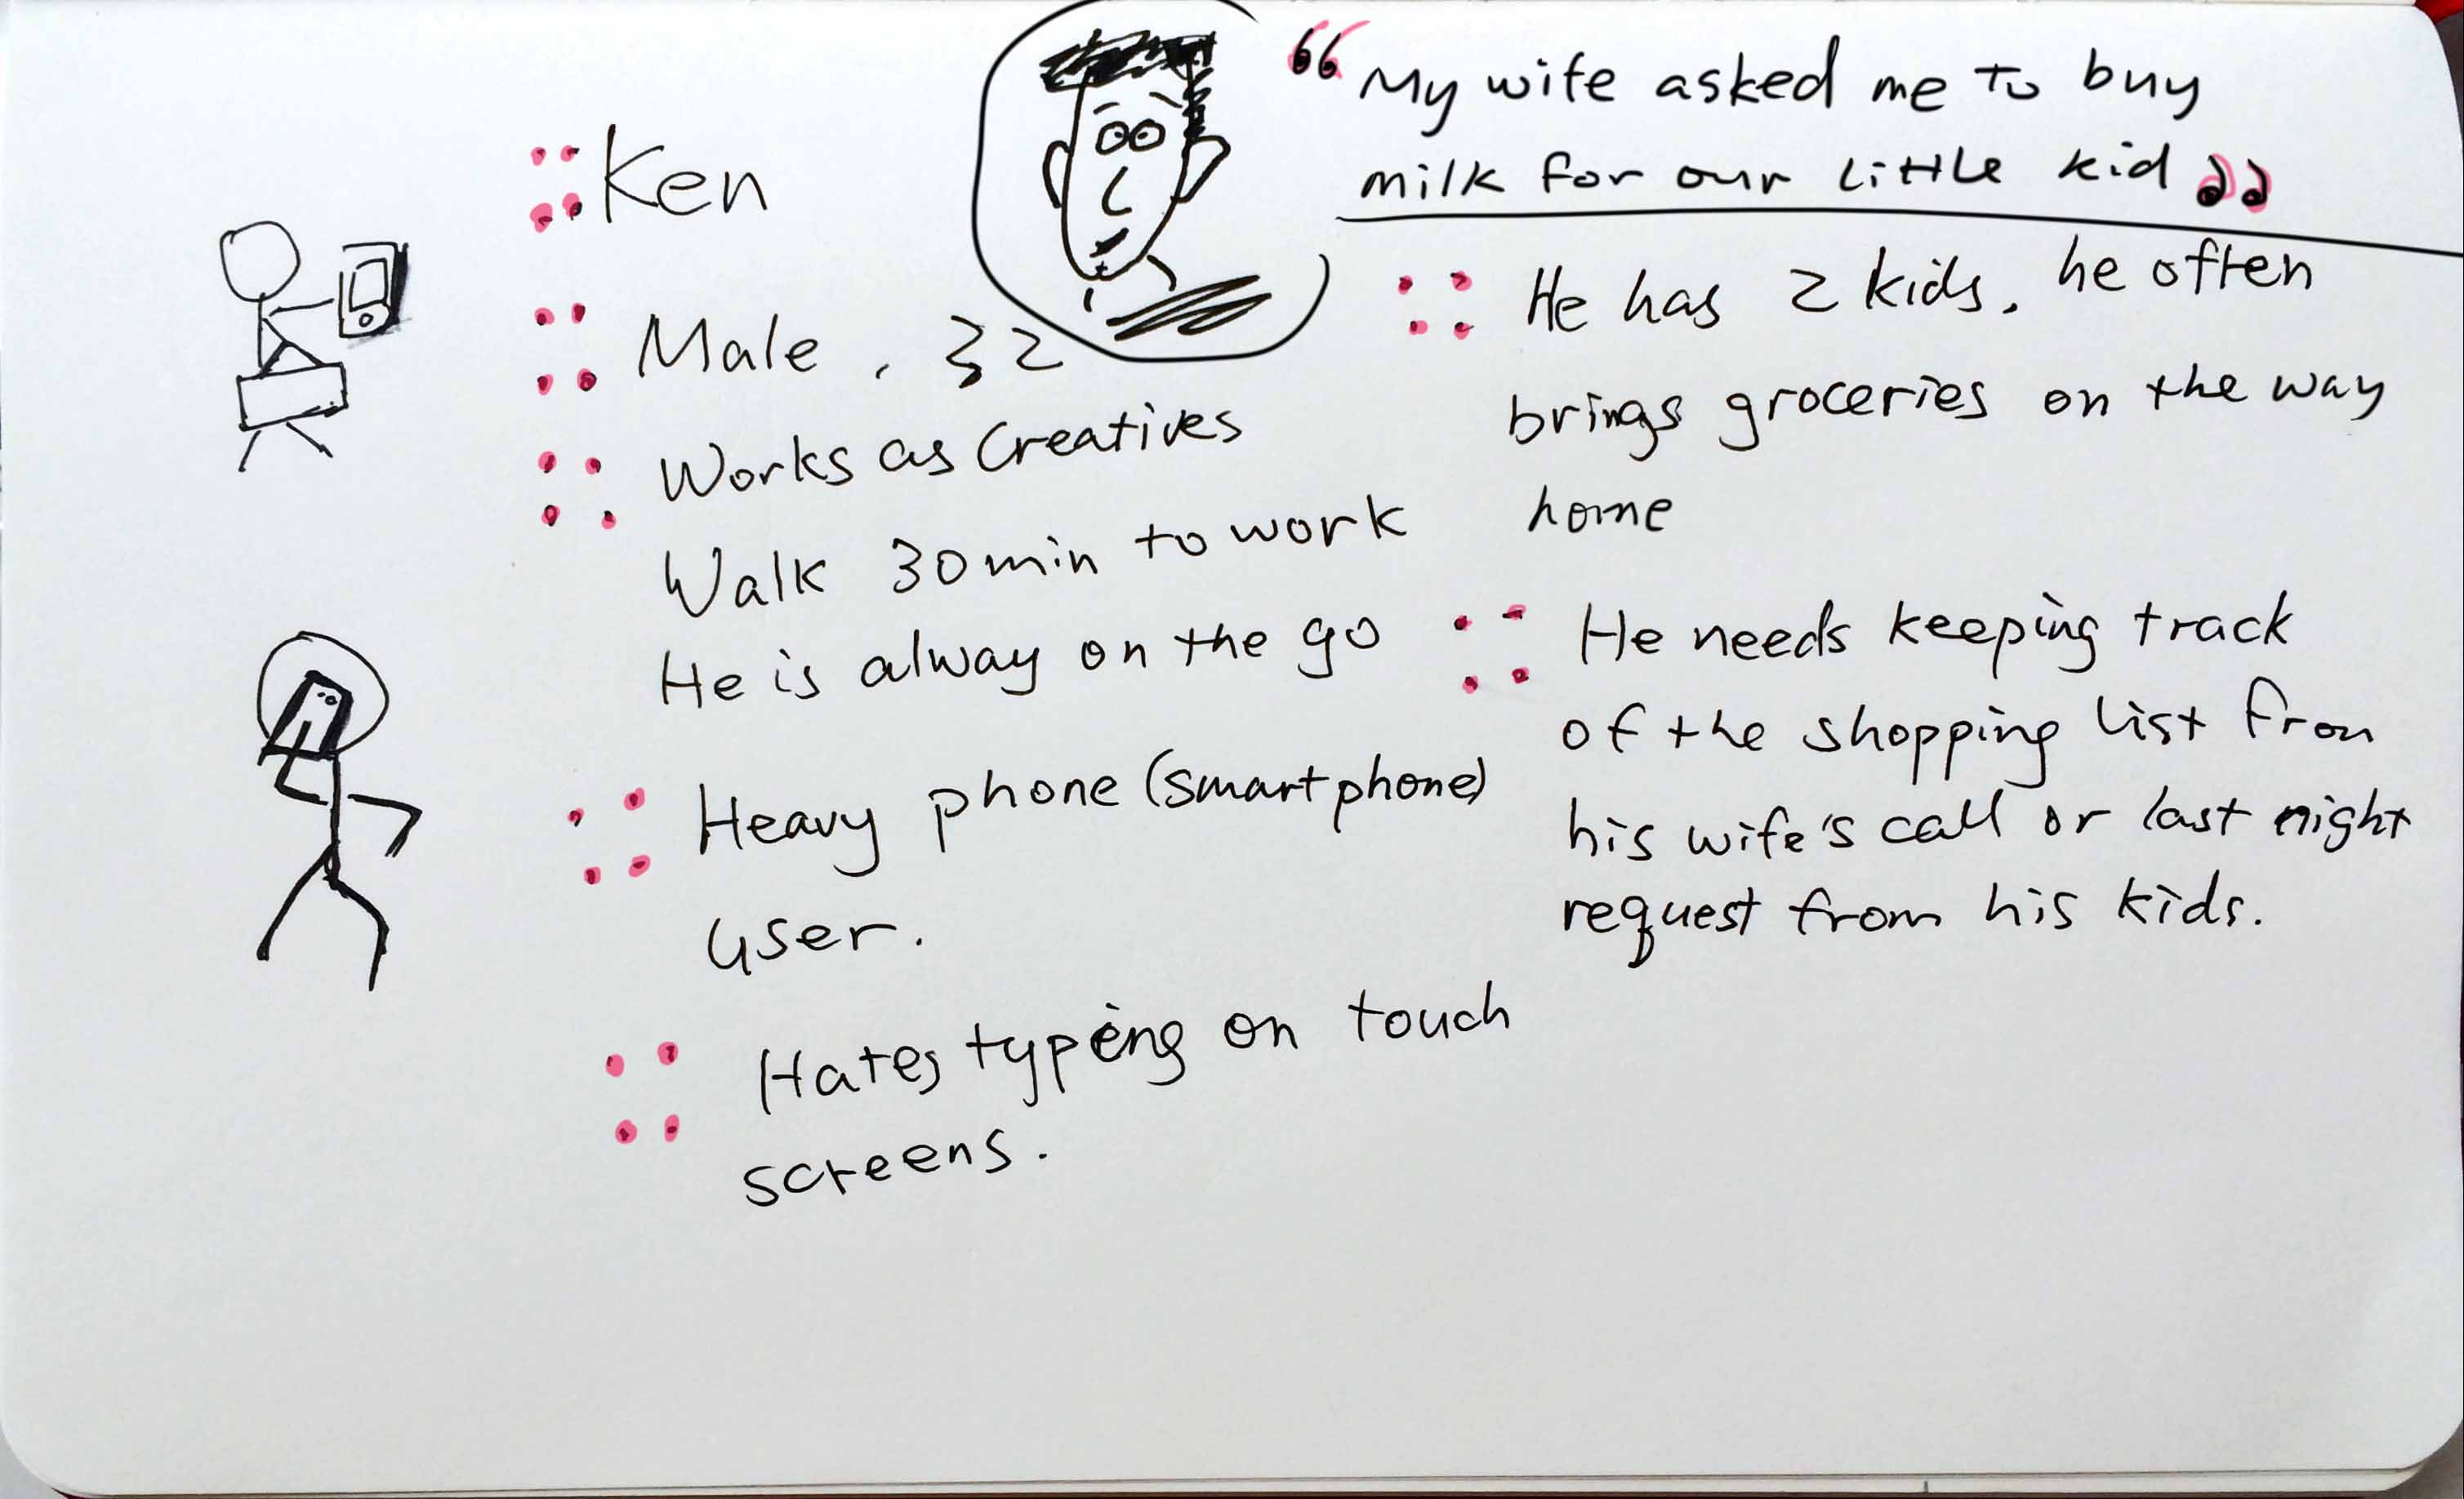 Ken
Male, 32
Works as Creatives
Walk 30min to work
He is alway on the go
Heavy phone (smartphone)
user.
Hates typing on touch
screens.
“My wife asked me to buy
milk for our little kid”
He has 2 kids. he often
brings groceries on the way
home
He needs keeping track
of the shopping list from
his wife's call or last night
request from his kids.